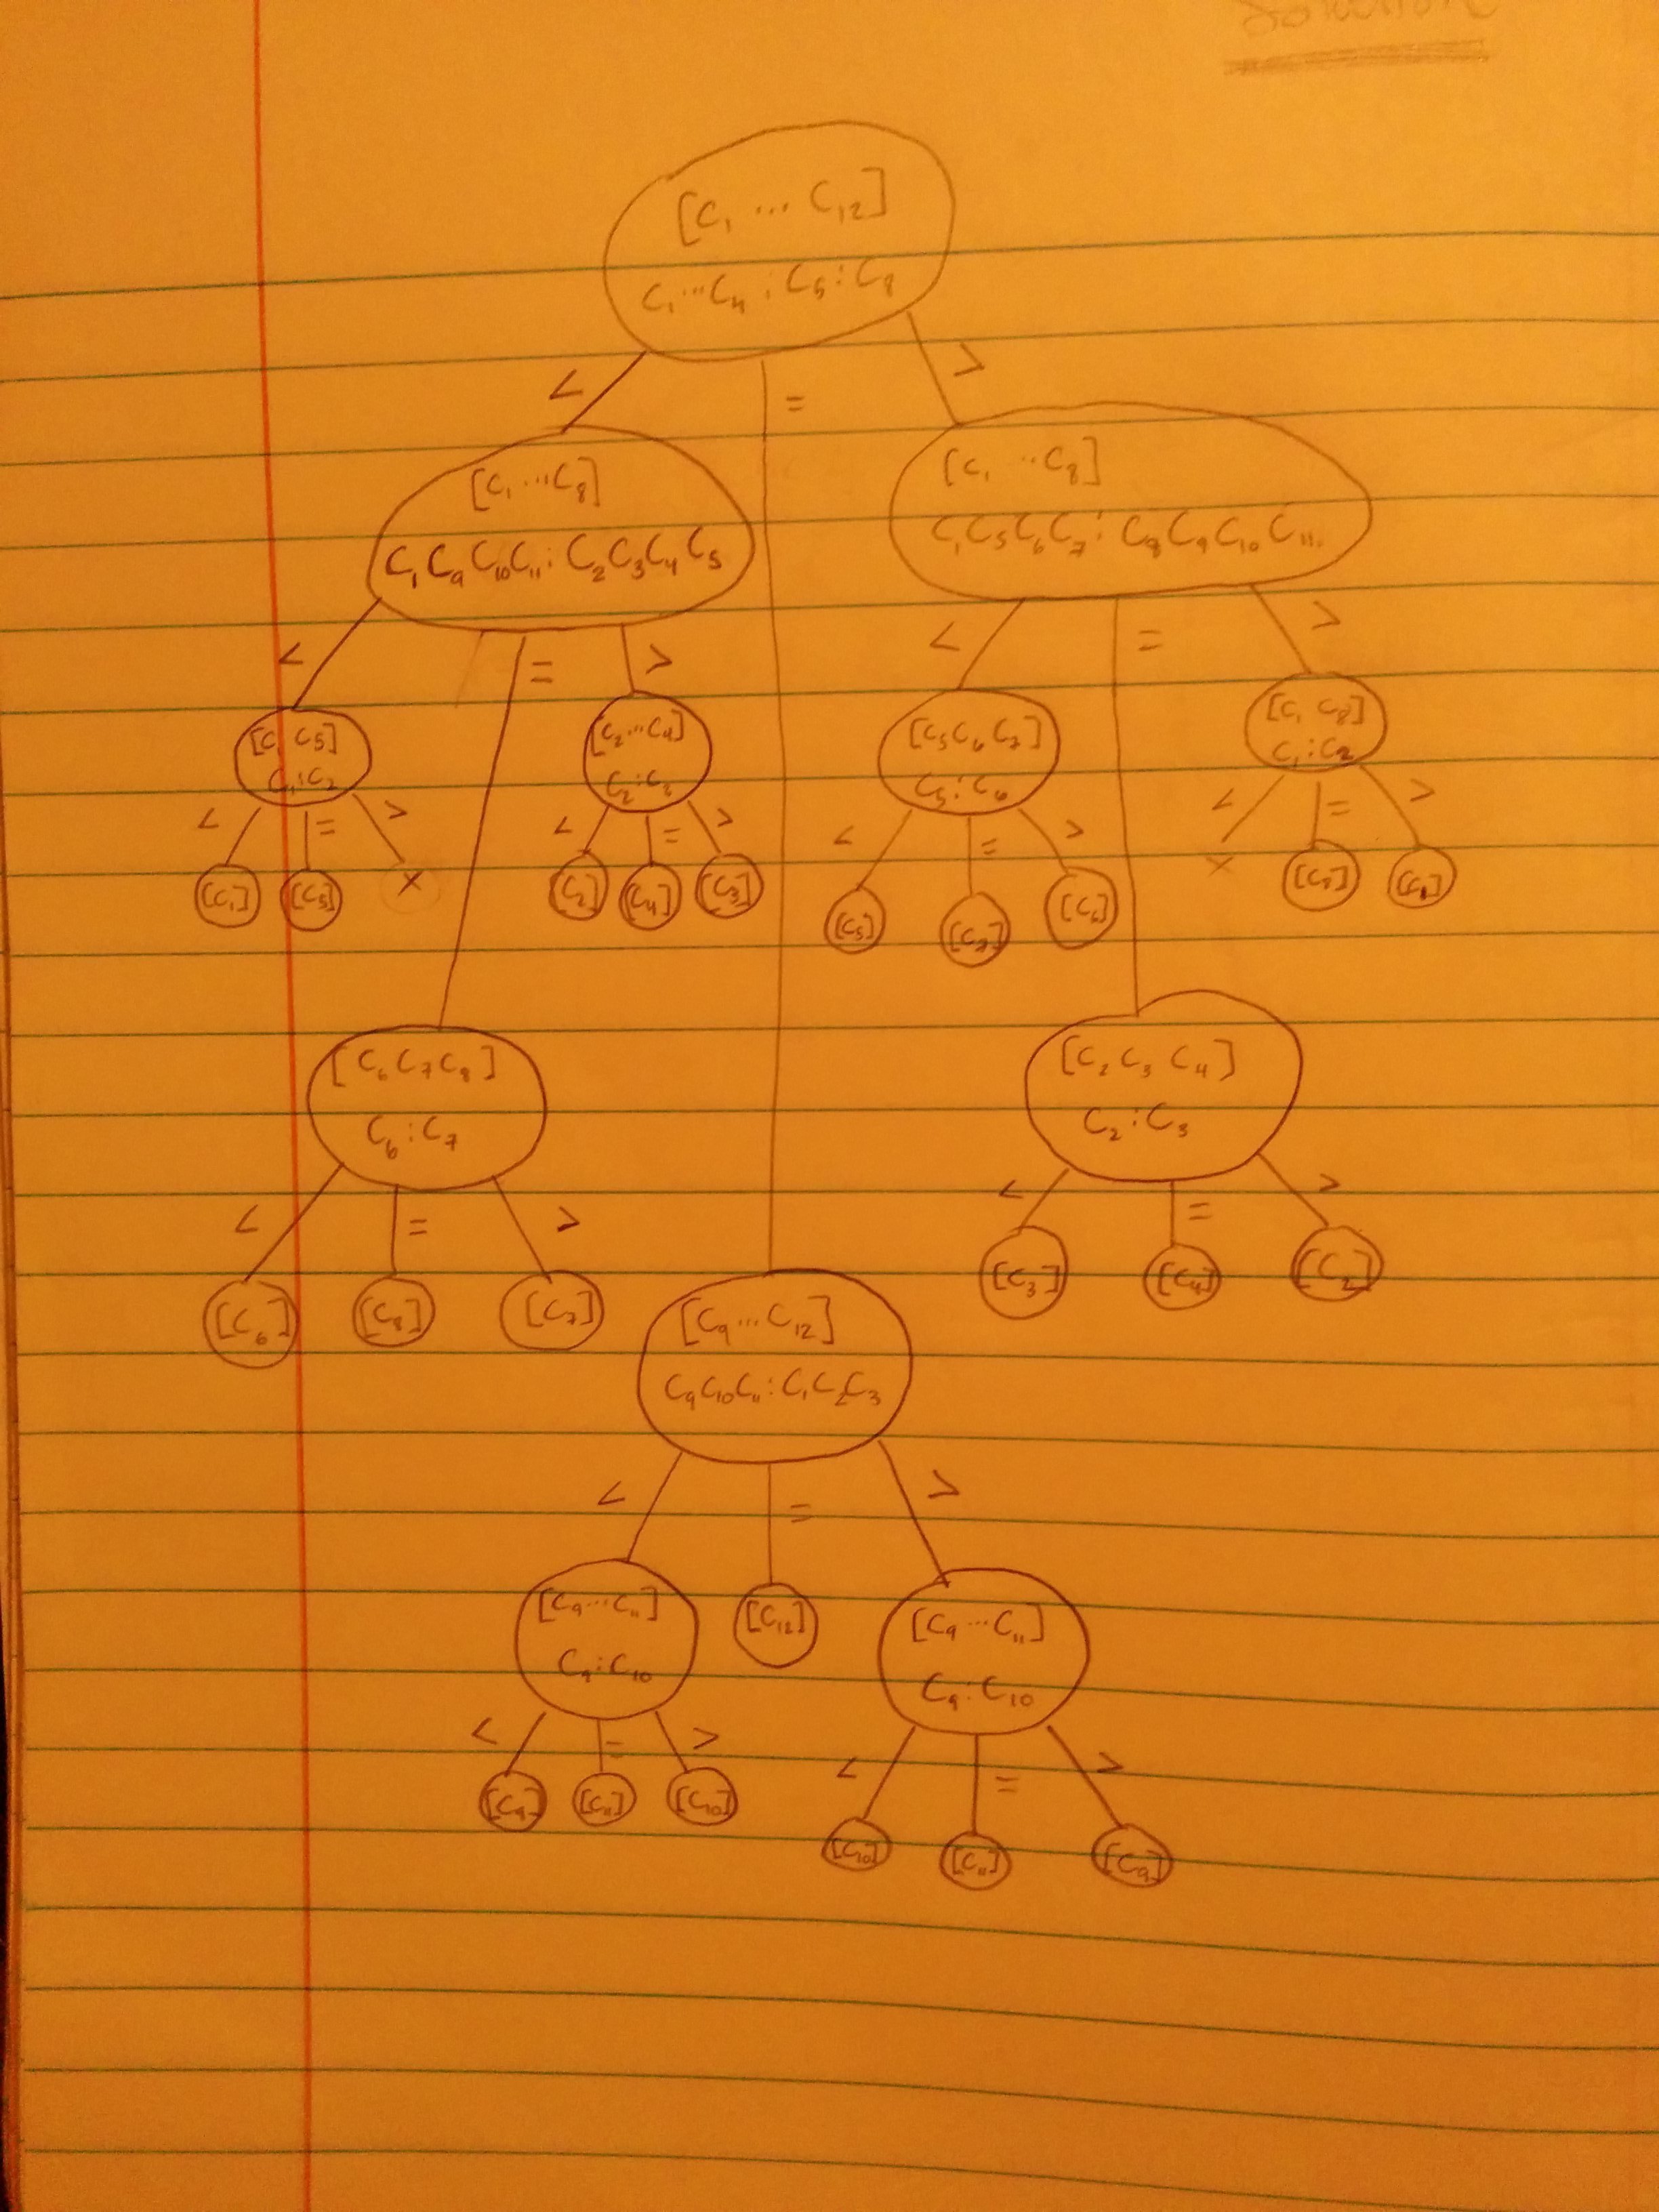 [C₁ ... C₁₂]
C₁...C₄ : C₅ : C₈
< = >
[C₁ ... C₈]
C₁ C₉ C₁₀ C₁₁ : C₂ C₃ C₄ C₅
[C₁ .. C₈]
C₁ C₅ C₆ C₇ : C₈ C₉ C₁₀ C₁₁
< = >
< = >
[C₁ C₅]
C₁ : C₂
[C₂...C₄]
C₂ : C₃
[C₅ C₆ C₇]
C₅ : C₆
[C₁ C₈]
C₁ : C₂
< = >
< = >
< = >
< = >
[C₁] [C₅] ×
[C₂] [C₄] [C₃]
[C₅] [C₇] [C₆]
×
[C₆ C₇ C₈]
C₆ : C₇
[C₂ C₃ C₄]
C₂ : C₃
< = >
< = >
[C₆] [C₈] [C₇]
[C₃] [C₄] [C₂]
[C₉ ... C₁₂]
C₉ C₁₀ C₁₁ : C₁ C₂ C₃
< = >
[C₉ ... C₁₁]
C₉ : C₁₀
[C₁₂]
[C₉ ... C₁₁]
C₉ : C₁₀
< = >
< = >
[C₉] [C₁₁] [C₁₀]
[C₁₀] [C₁₁] [C₉]